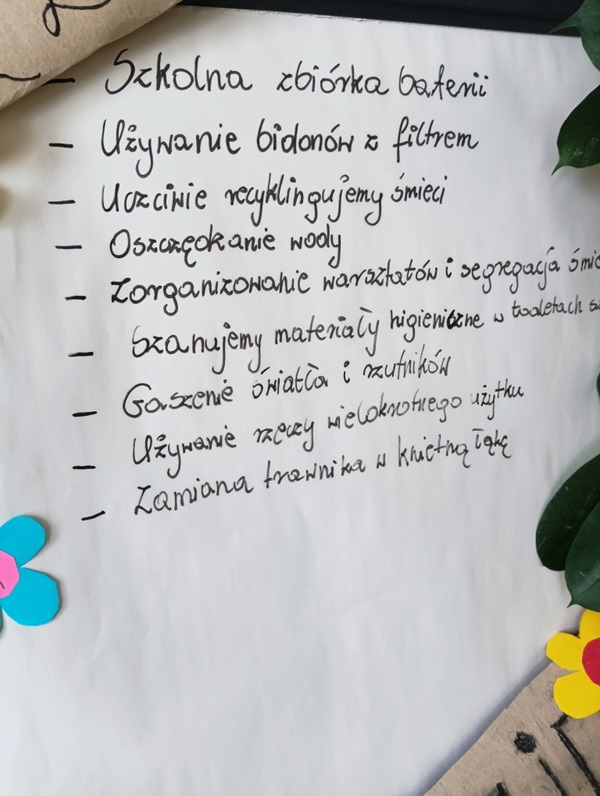 - Szkolna zbiórka baterii
- Używanie bidonów z filtrem
- Uczciwie recyklingujemy śmieci
- Oszczędzanie wody
- Zorganizowanie warsztatów i segregacja
- Szanujemy materiały higieniczne w toaletach
- Gaszenie światła i rzutników
- Używanie rzeczy wielokrotnego użytku
- Zamiana trawnika w kwietną łąkę